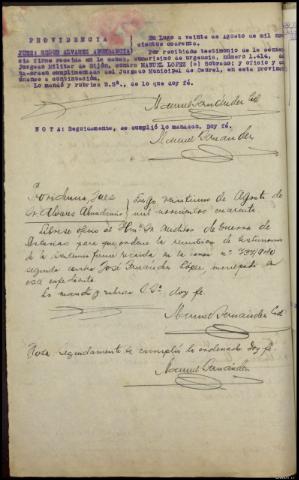 PROVIDENCIA En Lugo a veinte de Agosto de mil nove-
cientos cuarenta.
Por recibido testimonio de la senten-
cia firme recaida en la causa, sumarisimo de urgencia, número 1.414, del
Juzgado Militar de Gijón, contra MANUEL LOPEZ (a)
cumplimentada del Juzgado Municipal de Caurel, en esta provincia,
únanse a continuación.
Lo mandó y rubrica S.Sª., de lo que doy fé.
Manuel Fernandez
NOTA: Seguidamente, se cumplió lo mandado. Doy fé.
Manuel Fernandez
Providencia Juez Lugo veintiuno de Agosto de
Sr. Alvarez mil novecientos cuarenta
Librese oficio al Militar de Guerra de
Asturias para que ordene la remision de testimonio
de la sentencia firme recaida en la causa nº
seguida contra José Fernandez López, inculpado en
este expediente
Lo mandó y rubrica S.Sª doy fe.
Manuel Fernandez
Nota. Seguidamente se cumplió lo ordenado doy fe.
Manuel Fernandez